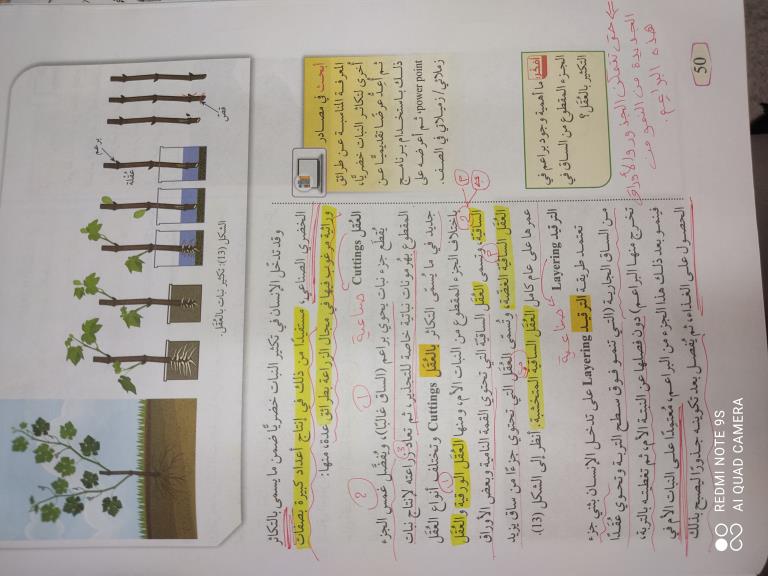 وقد تدخّل الإنسان في تكثير النبات خضريًّا ضمن ما يسمى بالتكاثر
الخضري الصناعي، مستفيدًا من ذلك في إنتاج أعداد كبيرة بصفات
وراثية مرغوب فيها في مجال الزراعة بطرائق عدة، منها:
العُقَل Cuttings
صناعية
يُقطع جزء نبات يحوي براعم (الساق غالبًا)، ويُفضَّل غمس الجزء
المقطوع بهرمونات نباتية خاصة للتجذير، ثم تعاد زراعته لإنتاج نبات
جديد في ما يُسمّى التكاثر بالعُقَل Cuttings وتختلف أنواع العُقَل
باختلاف الجزء المقطوع من النبات الأم، ومنها العُقَل الورقية والعُقَل
الساقية، وتسمى العُقَل الساقية التي تحتوي القمة النامية وبعض الأوراق
العُقَل الساقية الغضة، وتُسمّى العُقَل التي تحتوي جزءًا من ساق يزيد
عمرها على عام كامل العُقَل الساقية المتخشبة. أنظر إلى الشكل (13).
الترقيد Layering
صناعية
تعتمد طريقة الترقيد Layering على تدخل الإنسان بثني جزء
من الساق الجارية (التي تنمو فوق سطح التربة وتحوي عُقدًا
تخرج منها البراعم) دون فصلها عن النبتة الأم، ثم تغطيته بالتربة،
فينمو بعد ذلك هذا الجزء من البراعم، مُعتمِدًا على النبات الأم في
الحصول على الغذاء، ثم يُفصل بعد تكوينه جذورًا ليصبح بذلك
أبحث في مصادر
المعرفة المناسبة عن طرائق
أخرى لتكاثر النبات خضريًّا،
ثم أعدّ عرضًا تقديميًّا عن
ذلك باستخدام برنامج
power point، ثم أعرضه على
زملائي/ زميلاتي في الصف.
أفكر: ما أهمية وجود براعم في
الجزء المقطوع من الساق في
التكثير بالعُقَل؟
الجديدة من النمو من
هذه البراعم.
الشكل (13): تكثير نبات بالعُقَل.
قص
برعم
عُقلة
50
REDMI NOTE 9S
AI QUAD CAMERA